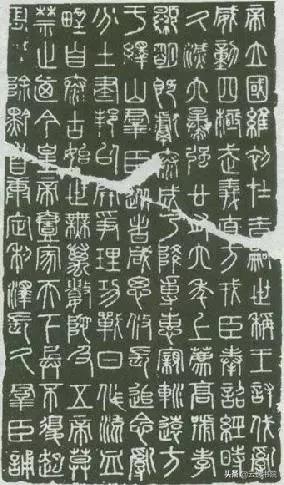 帝立國維初在昔嗣世稱王討伐亂
威動四極武義直方戎臣奉詔經時
久滅六暴強廿有六年上薦高號孝
顯明既獻泰成乃降專惠親巡遠方
于繹山群臣從者咸思攸長追念亂
分土建邦以開爭理功戰日作流血
野自泰古始世無萬數陀及五帝莫
禁止乃今皇帝壹家天下兵不復起
害滅除黔首康定利澤長久群臣誦